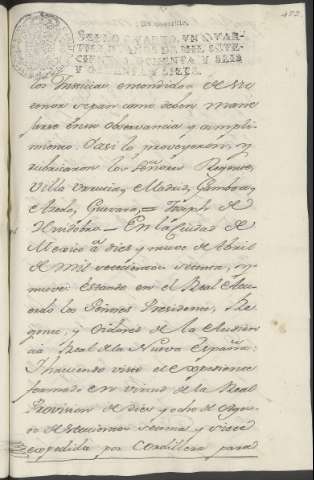 Un quartillo.
472.
SELLO QUARTO, VN QVAR-
TILLO, AÑOS DE MIL SETE-
CIENTOS OCHENTA Y SEIS
Y OCHENTA Y SIETE.
los Jueces entendidos de
sepan como deben mane
jarse en su observancia y cumpli
miento. Y asi lo proveyeron, y
rubricaron los Señores Regente,
Villa Urrutia, Madrid, Gamboa,
Azedo, Guevara, = Joseph de
En la Ciudad de
Mexico à diez y nueve de Abril
de mil setecientos ochenta, y
nueve: estando en el Real Acu
erdo los Señores Presidente, Re
gente, y Oidores de la Audien
cia Real de la Nueva España:
Haviendo visto el expediente
formado en virtud de la Real
Provision de diez y ocho de
de setecientos y siete
expedida por Cordillera para